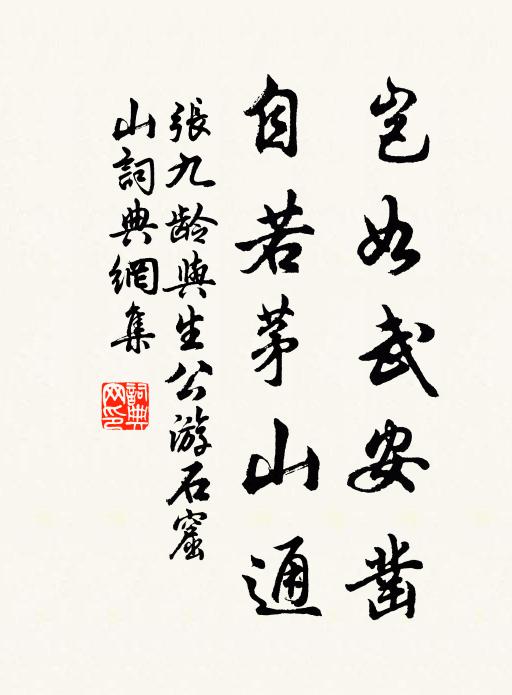 岂如武安凿
自若茅山通
張九龄與生公游石窟
山詞典網集
詞典
网印